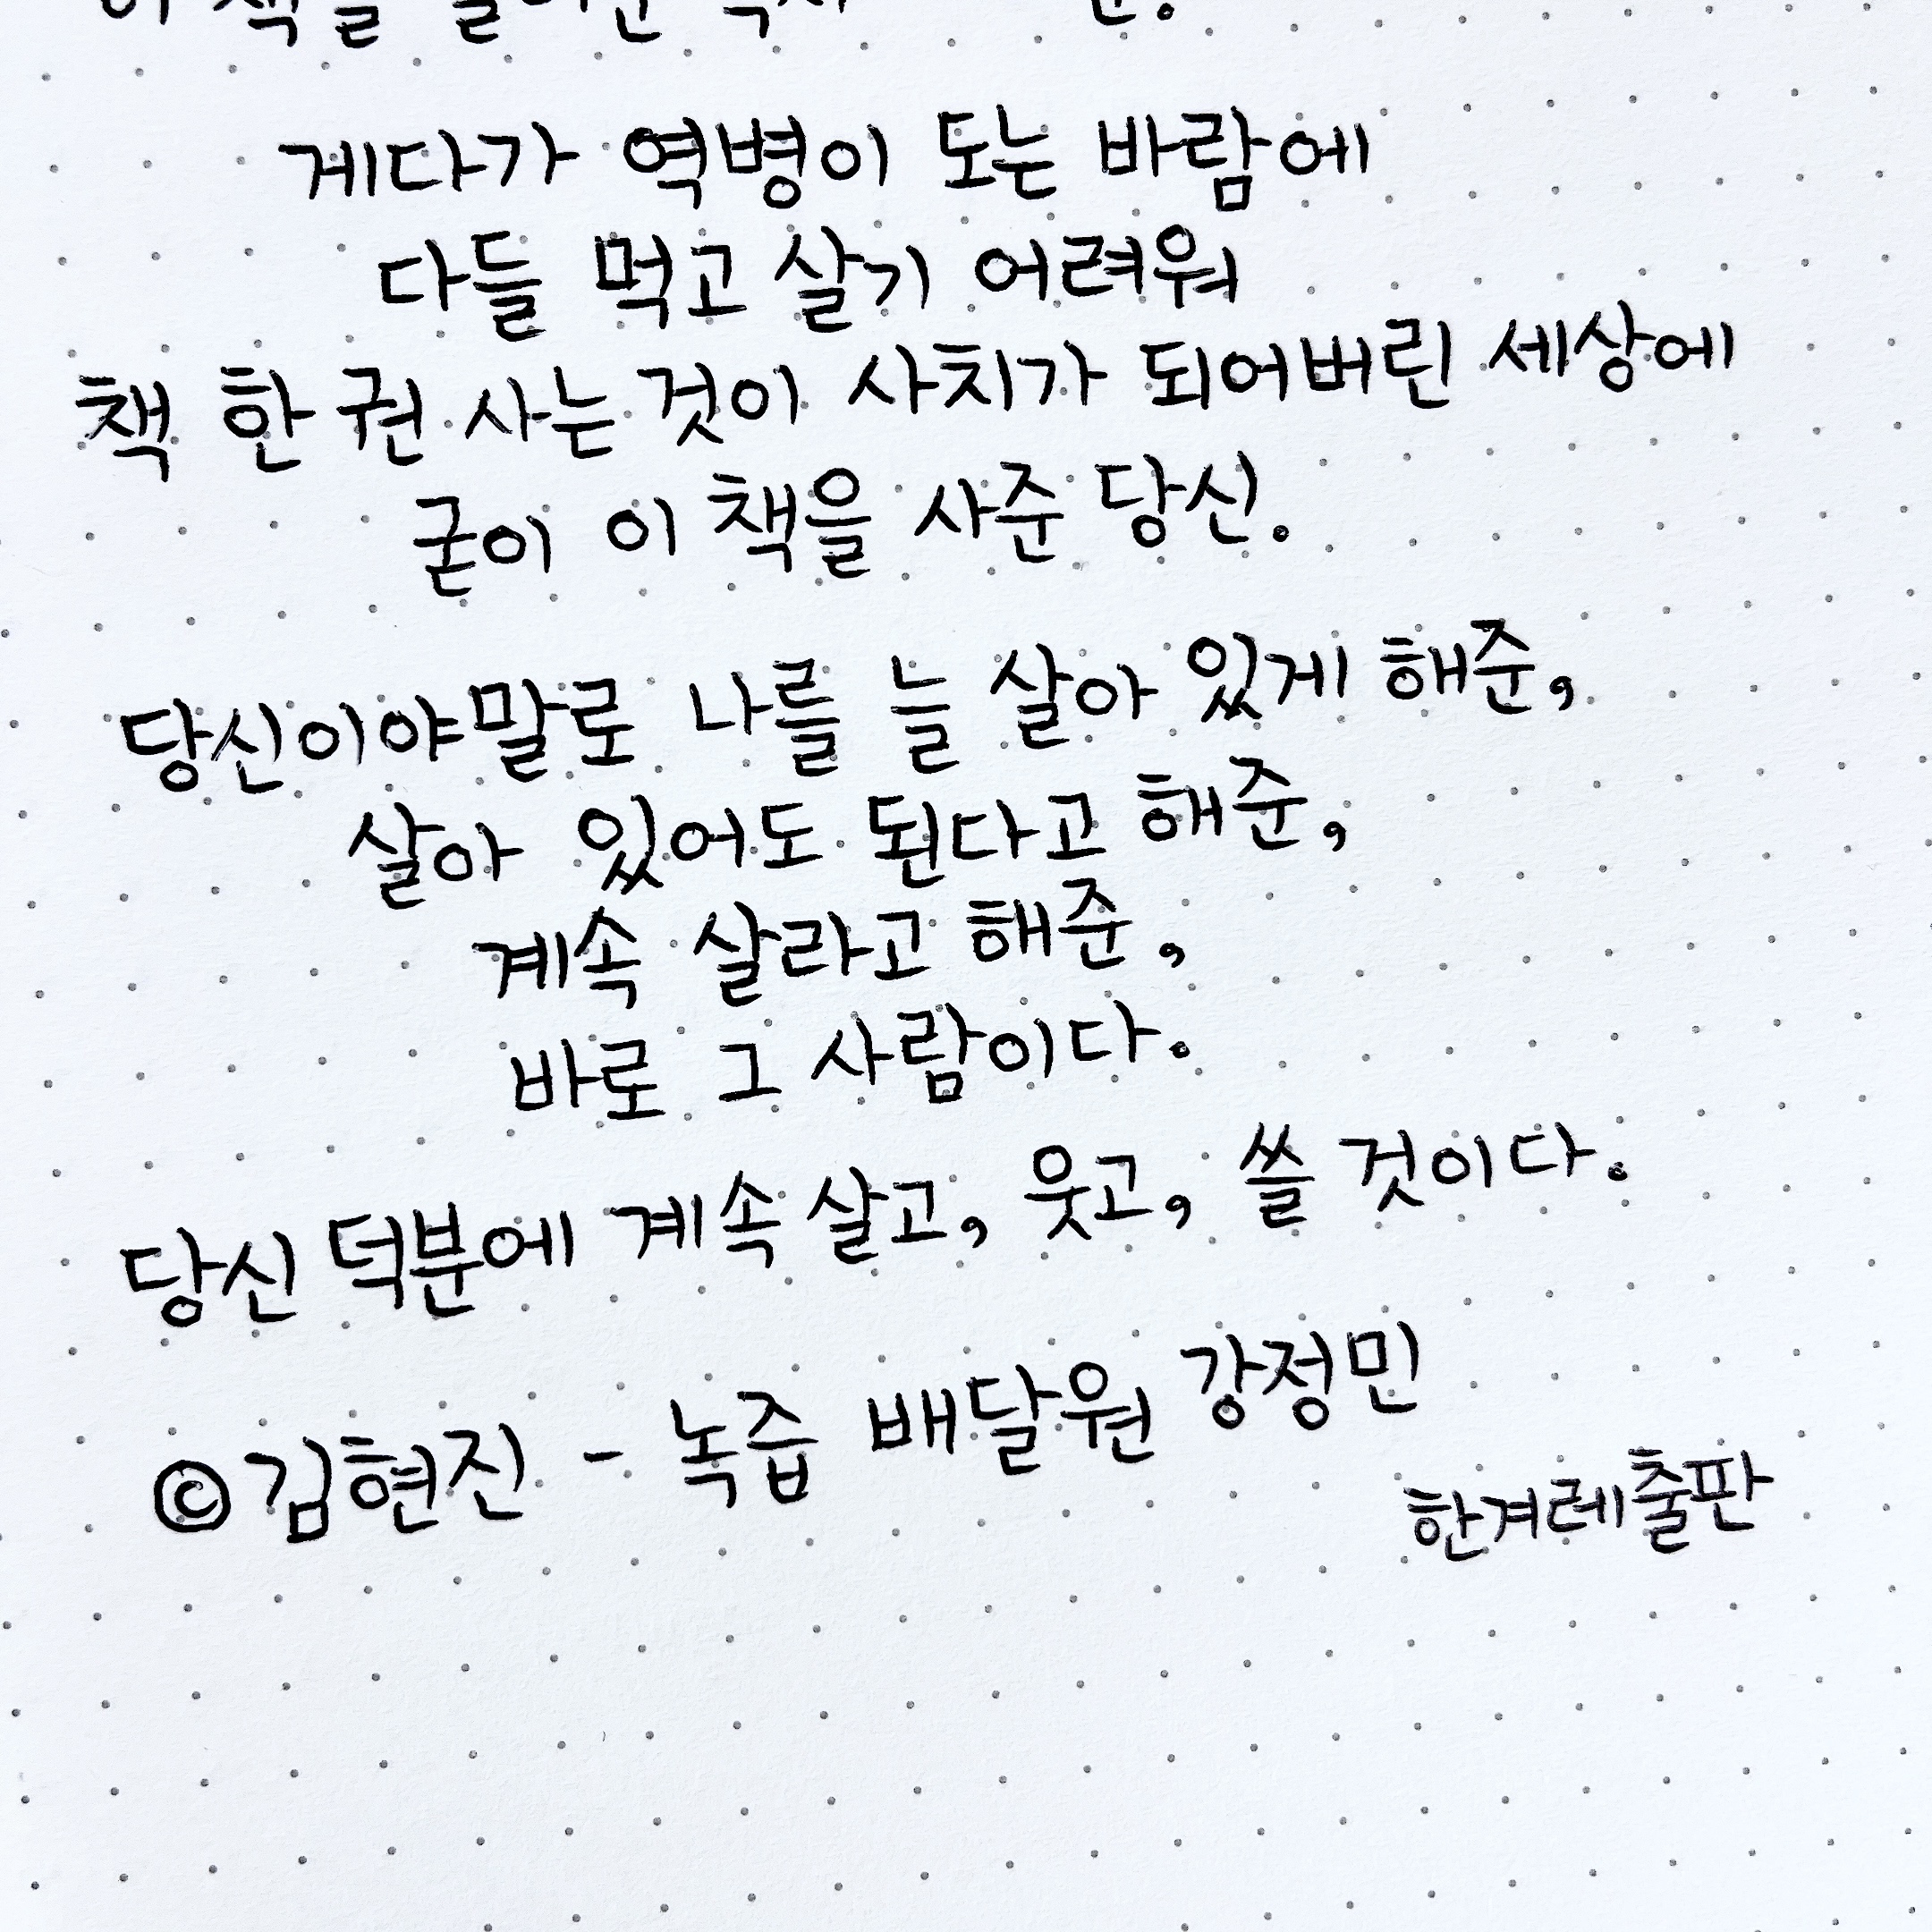 게다가 역병이 도는 바람에
다들 먹고 살기 어려워
책 한 권 사는 것이 사치가 되어버린 세상에
굳이 이 책을 사준 당신.
당신이야말로 나를 늘 살아 있게 해준,
살아 있어도 된다고 해준,
계속 살라고 해준,
바로 그 사람이다.
당신 덕분에 계속 살고, 웃고, 쓸 것이다.
©김현진 - 녹즙 배달원 강정민
한겨레출판